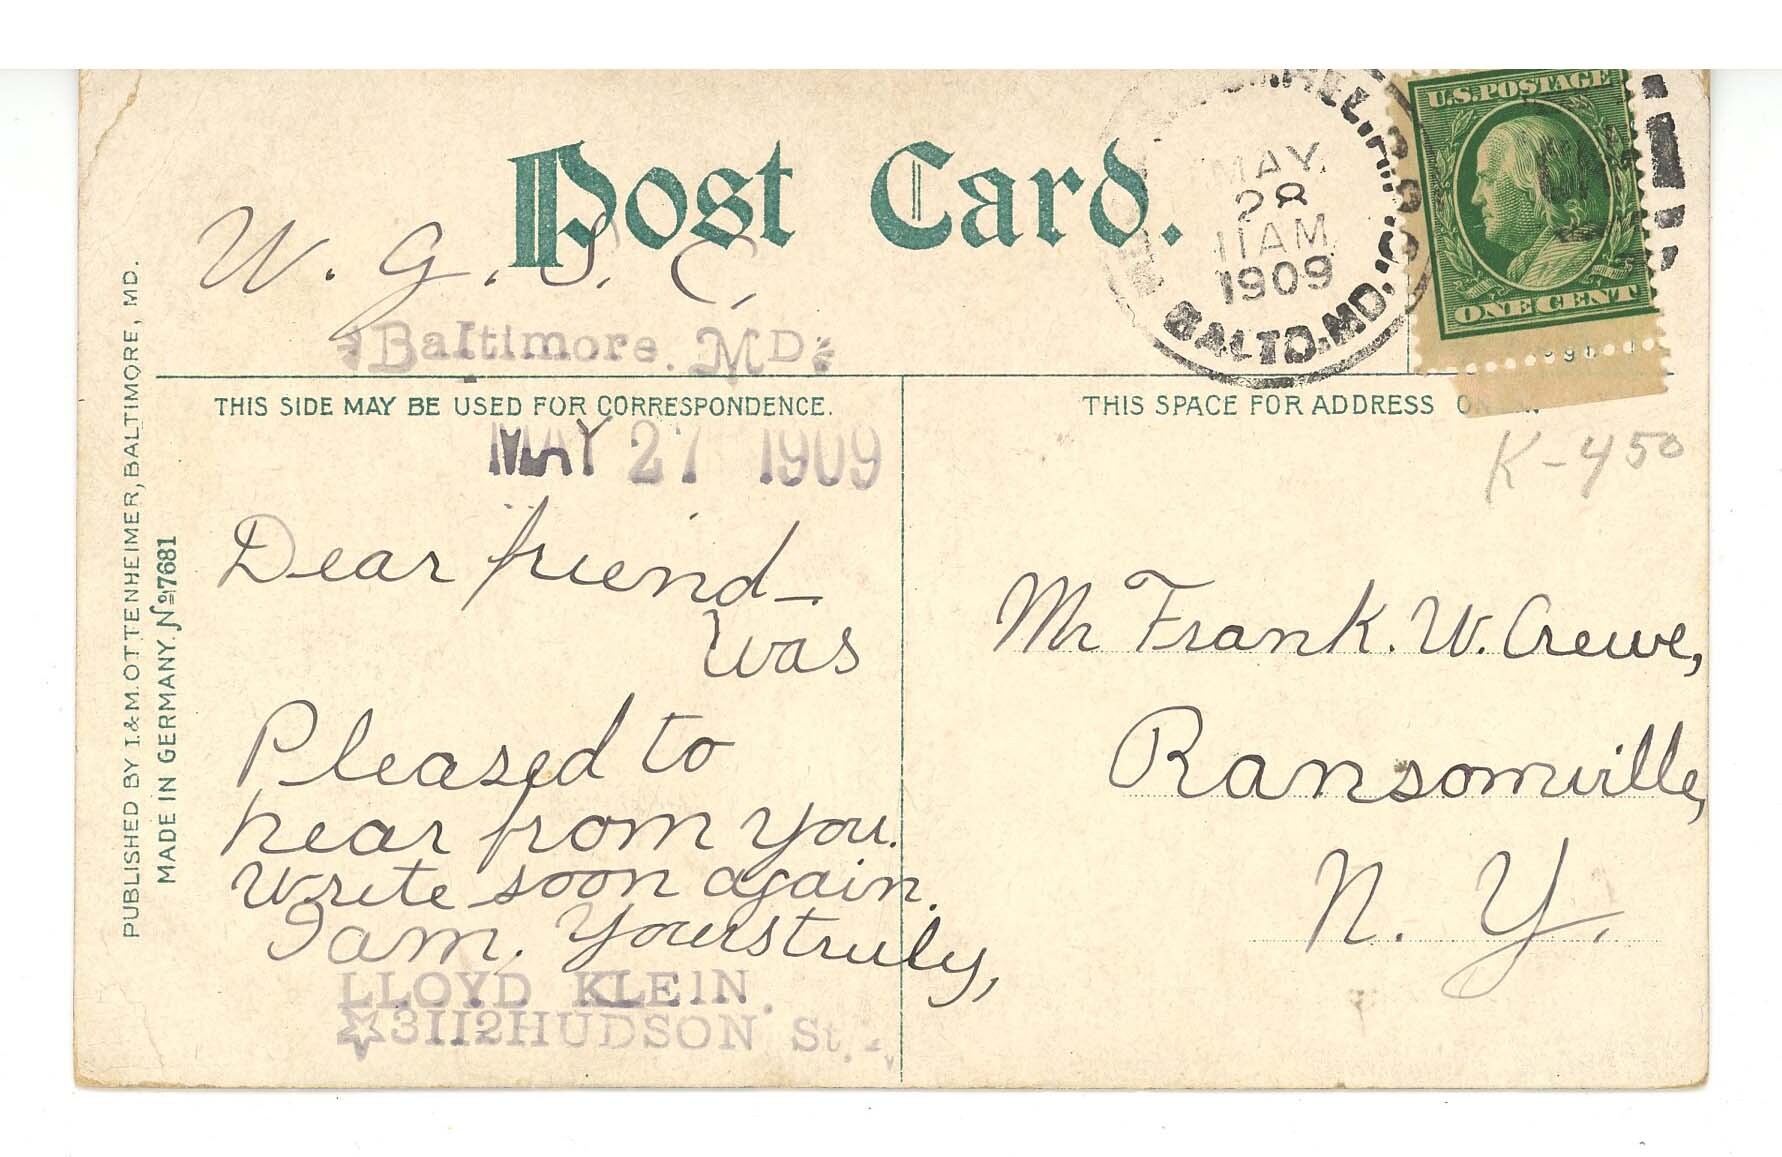 Post Card.
W. G. S. C.
Baltimore. MD
THIS SIDE MAY BE USED FOR CORRESPONDENCE.
MAY 27 1909
Dear friend—
Was
Pleased to
hear from you.
Write soon again.
I am. Yours truly,
LLOYD KLEIN.
☆3112 HUDSON St.
PUBLISHED BY I. & M. OTTENHEIMER, BALTIMORE, MD.
MADE IN GERMANY. No 7681
MAY.
28
11 AM
1909
BALTO. MD.
U.S. POSTAGE
ONE CENT
THIS SPACE FOR ADDRESS
K-450
Mr Frank. W. Crewe,
Ransomville,
N. Y.